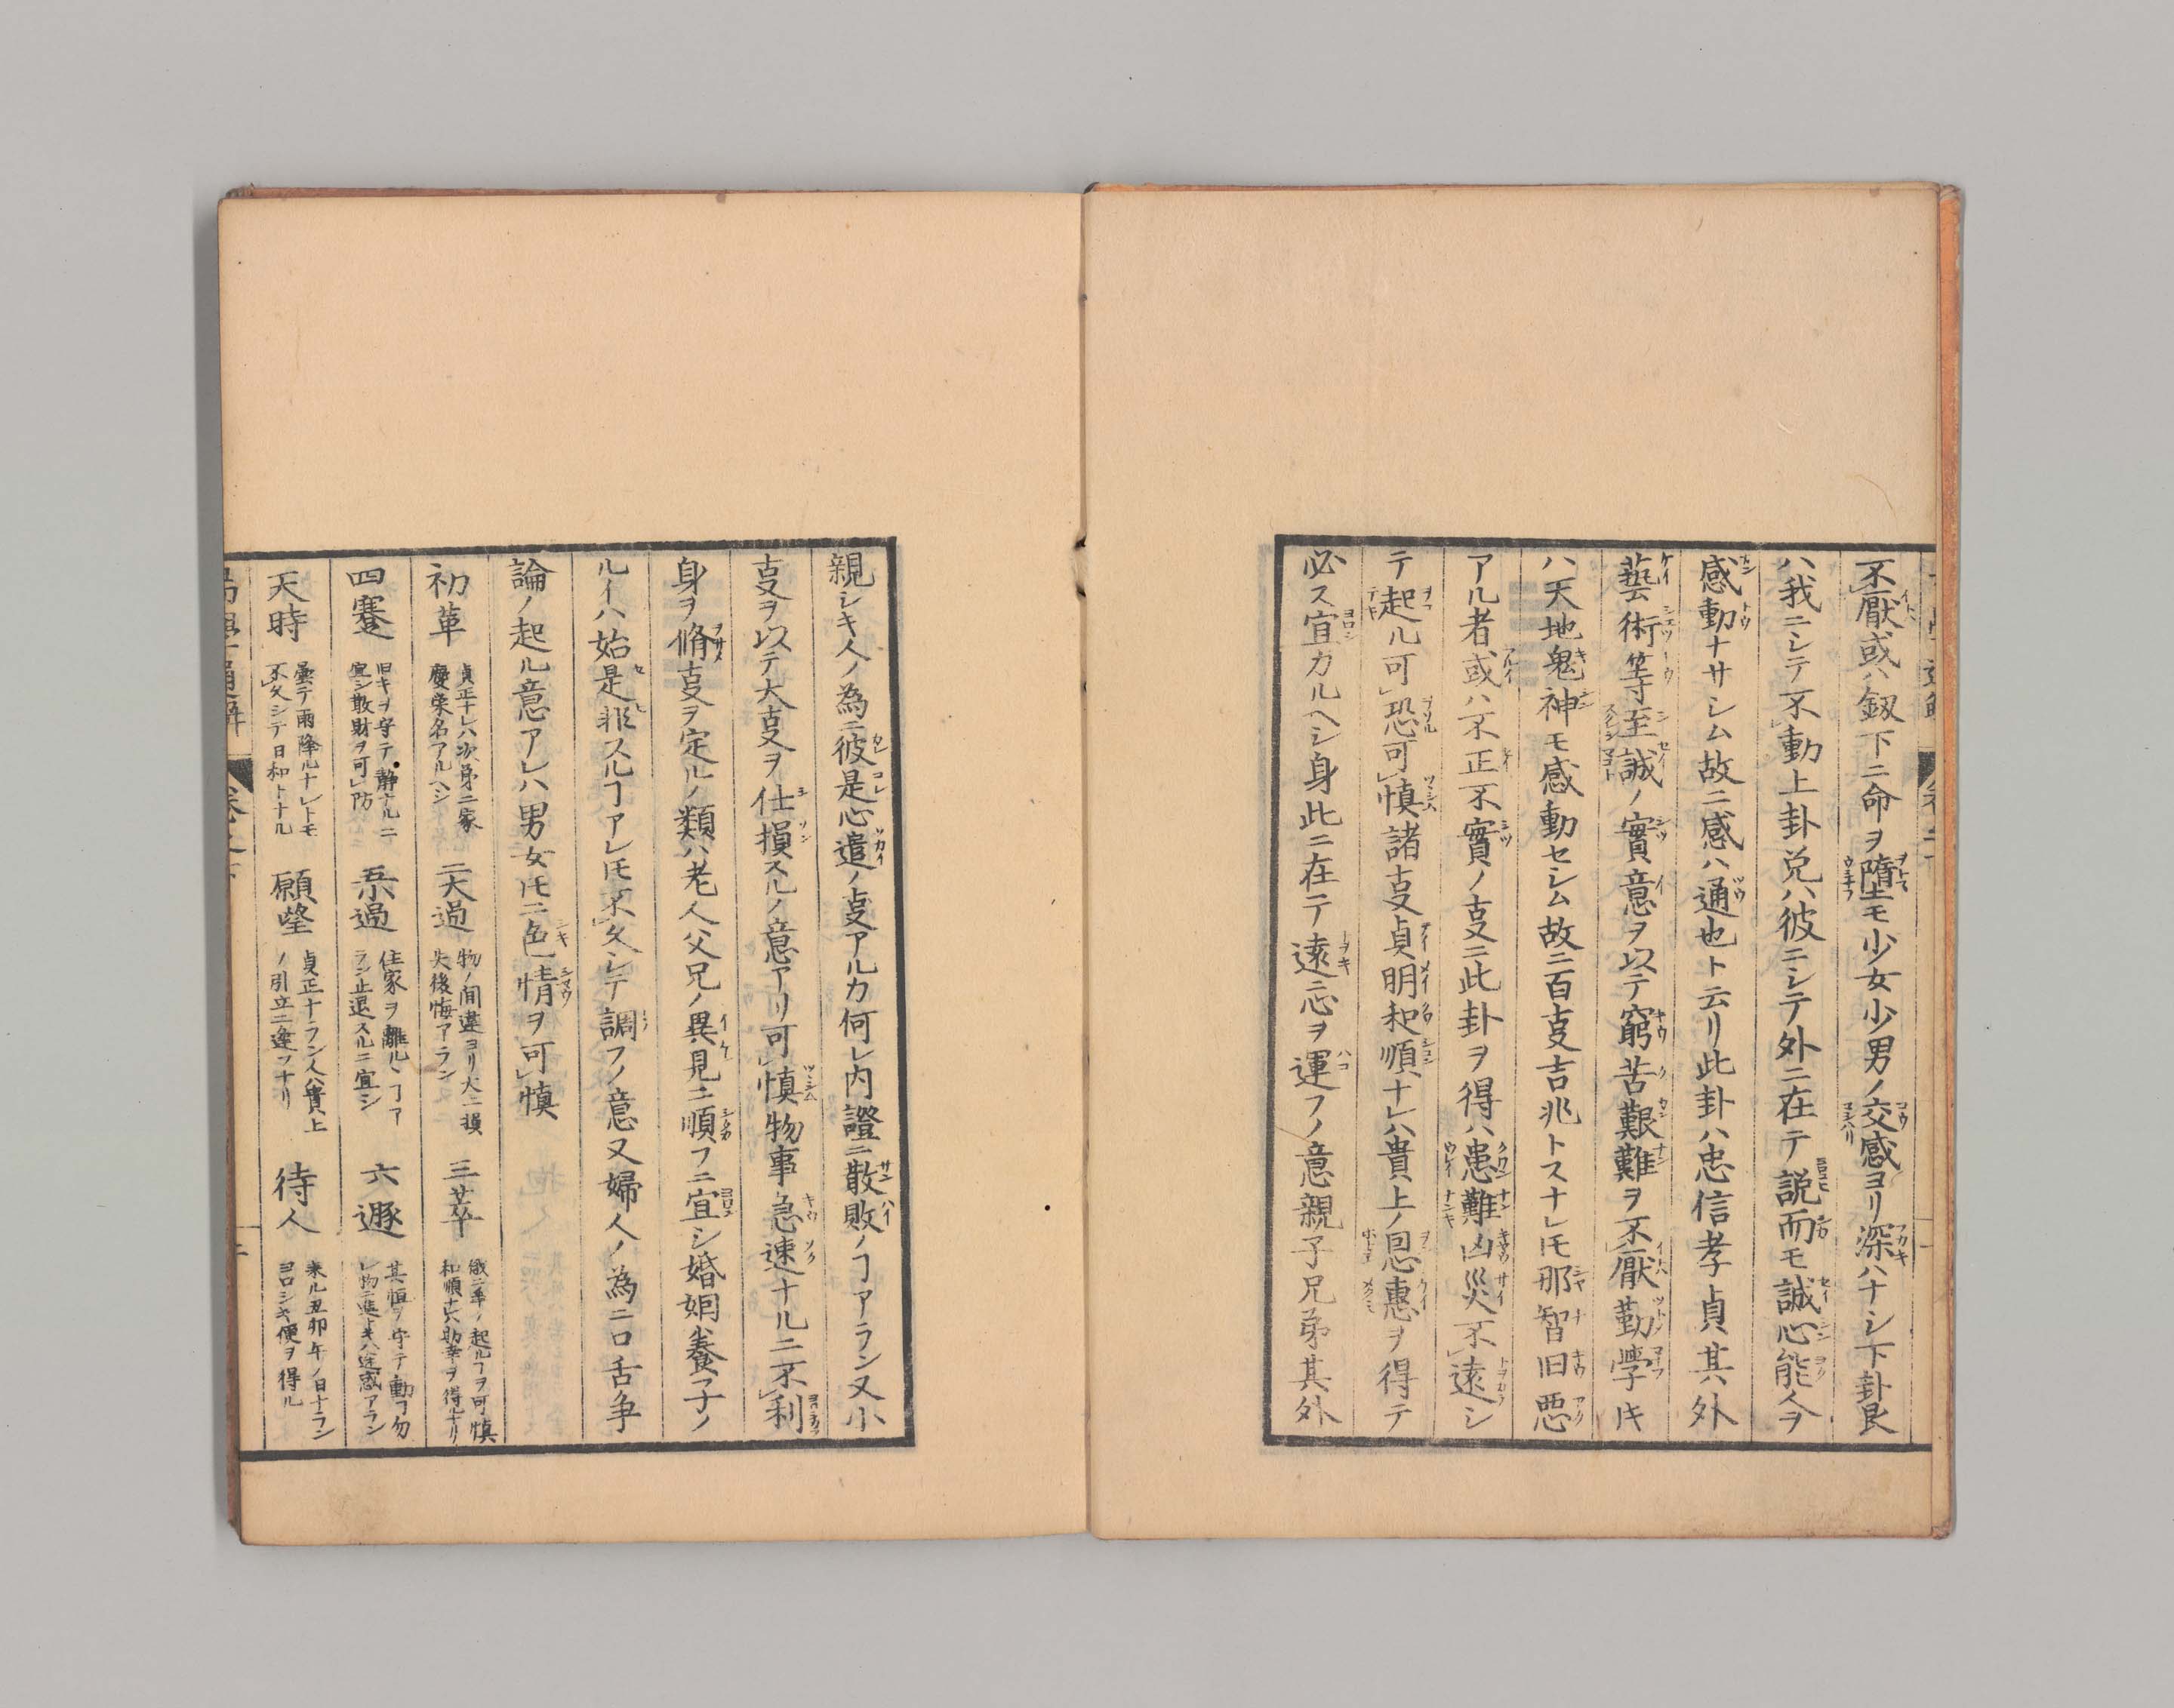 不厭或ハ釼下ニ命ヲ墮モ少女少男ノ交感ヨリ深ハナシ下卦艮
ハ我ニシテ不動上卦兌ハ彼ニシテ外ニ在テ説而モ誠心能人ヲ
感動ナサシム故ニ感ハ通也ト云リ此卦ハ忠信孝貞其外
藝術等至誠ノ實意ヲ以テ窮苦艱難ヲ不厭勤學ドキ
ハ天地鬼神モ感動セシム故ニ百㕝吉兆トスナレ𪜈那智旧悪
アル者或ハ不正不實ノ㕝ニ此卦ヲ得ハ患難凶災不遠シ
テ起ル可恐可慎諸㕝貞明和順ナレハ貴上ノ恩惠ヲ得テ
必ス宜カルヘシ身此ニ在テ遠ニ心ヲ運フノ意親子兄弟其外
親シキ人ノ為ニ彼是心遣ノ㕝アルカ何レ内證ニ散敗ノヿアラン又小
㕝ヲ以テ大㕝ヲ仕損スルノ意アリ可慎物事急速ナルニ不利
身ヲ脩㕝ヲ定ルノ類ハ老人父兄ノ異見ニ順フニ宜シ婚姻養子ノ
ルイハ始是非スルヿアレ𪜈不久シテ調フノ意又婦人ノ為ニ口舌争
論ノ起ル意アレハ男女𪜈ニ色情ヲ可慎
初革 貞正ナレハ次第ニ家慶栄名アルヘシ 二大過 物ノ間違ヨリ大ニ損失後悔アラン 三萃 俄ニ率ノ起ルヿヲ可慎和順ナレハ助幸ヲ得ルナリ
四蹇 旧キヲ守テ静ナルニ宜シ散財ヲ可防 五小過 住家ヲ離ルヽヿアラン止退スルニ宜シ 六遯 其恒ヲ守テ動ヿ勿レ物ニ進トキハ迷惑アラン
天時 曇テ雨降ルナレトモ不久シテ日和トナル 願望 貞正ナラン人ハ貴上ノ引立ニ逢フナリ 待人 来ル丑卯午ノ日ナランヨロシキ便ヲ得ル